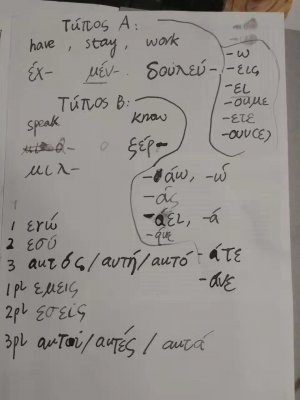 Τύπος Α:
have, stay, work
έχ- μέν- δουλεύ-
-ω
-εις
-ει
-ουμε
-ετε
-ουν(ε)
Τύπος Β:
speak know
ξέρ-
μιλ-
-άω, -ώ
-άς
-άει, -ά
-άμε
-άτε
-άνε
1 εγώ
2 εσύ
3 αυτός/αυτή/αυτό
1pl εμεις
2pl εσείς
3pl αυτοί/αυτές/αυτά